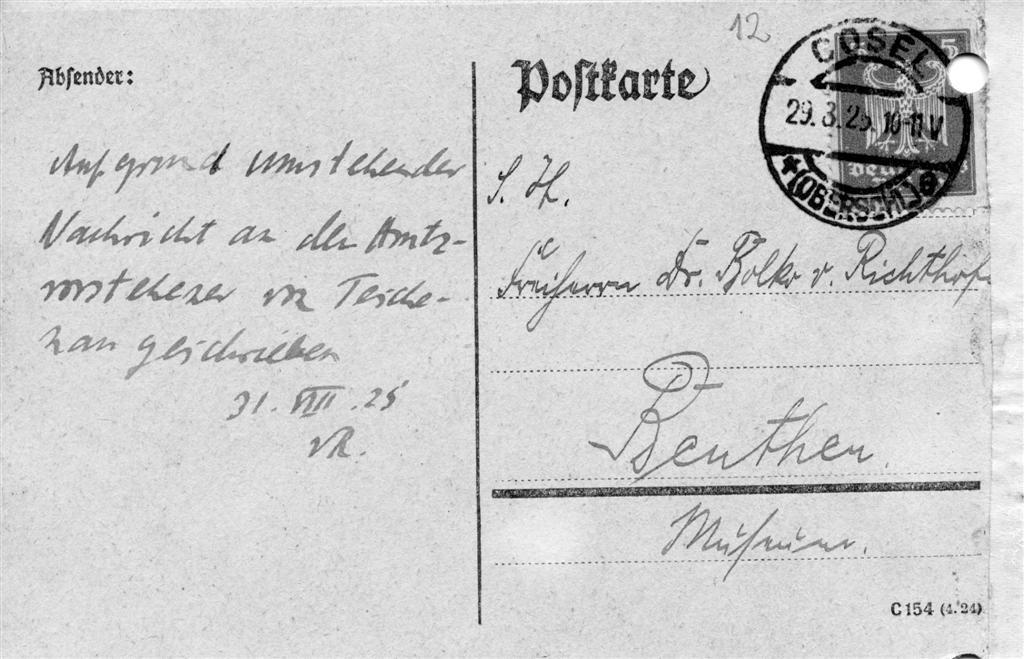 12
COSEL
29.8.25. 10-11 V
* (OBERSCHL.) a
5
Absender:
Postkarte
Auf grund umstehender
Nachricht an den Amts-
vorsteher von
geschrieben
31. VIII. 25
vR.
S. H.
Freiherrn Dr. Bolko v. Richthof
Beuthen.
Museum.
C 154 (4. 24)